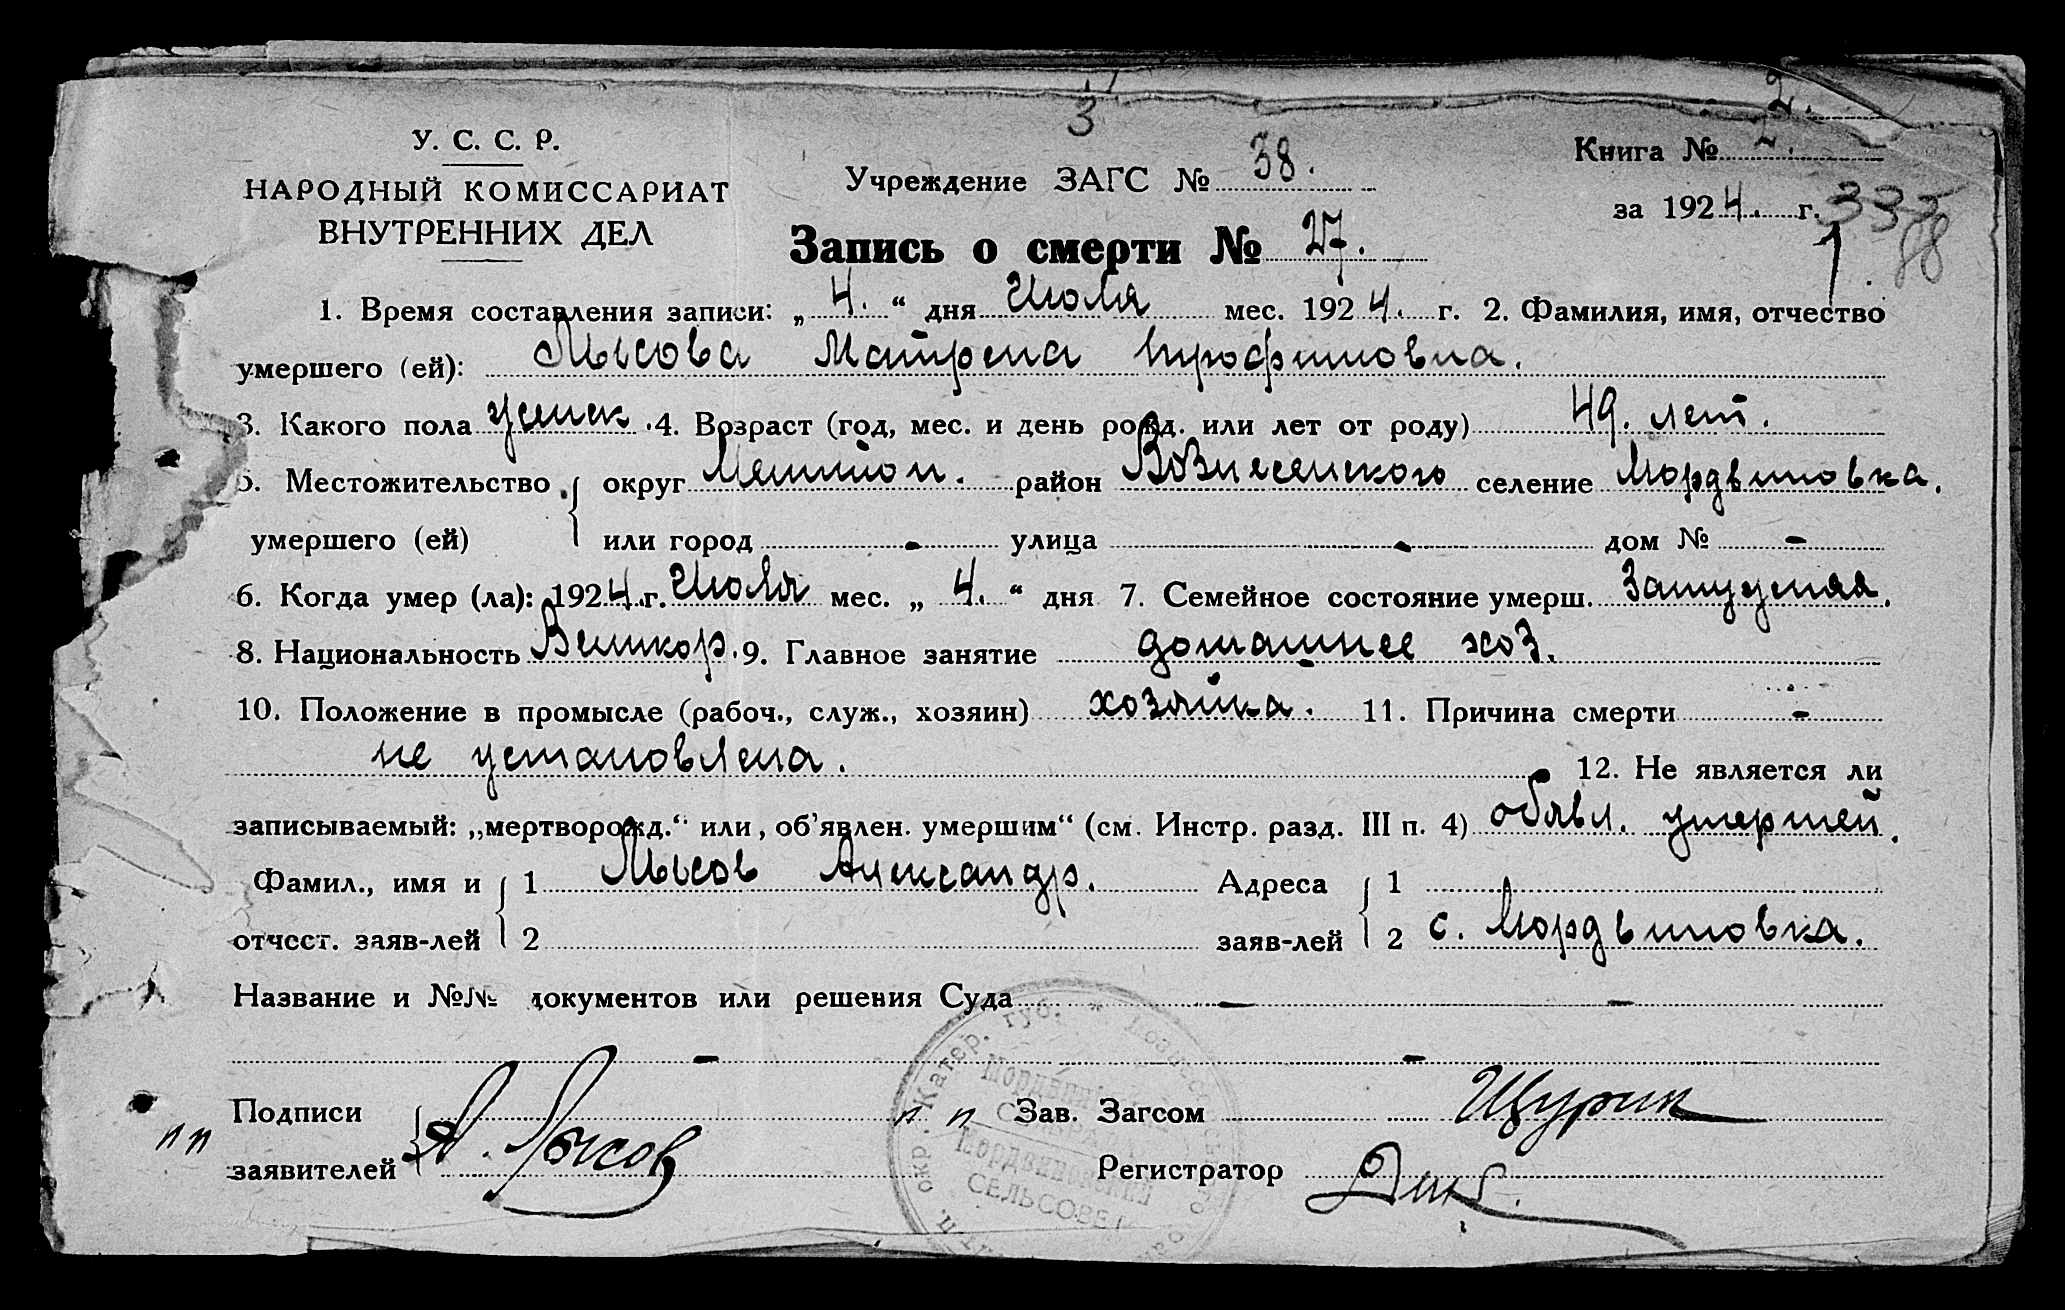 3
2.
У. С. С. Р.
Книга № 2.
НАРОДНЫЙ КОМИССАРИАТ
Учреждение ЗАГС № 38.
ВНУТРЕННИХ ДЕЛ
за 1924. г. 335
88
1
Запись о смерти № 27.
1. Время составления записи: „4.“ дня Июля мес. 1924. г. 2. Фамилия, имя, отчество
умершего (ей): Лысова Матрена Трофимовна.
3. Какого пола женск. 4. Возраст (год, мес. и день рожд. или лет от роду) 49. лет.
5. Местожительство округ Мелитоп. район Вознесенского селение Мордвиновка.
умершего (ей) или город - улица - дом № -
6. Когда умер (ла): 1924. г. Июля мес. „4.“ дня 7. Семейное состояние умерш. Замужняя.
8. Национальность Великор. 9. Главное занятие домашнее хоз.
10. Положение в промысле (рабоч., служ., хозяин) хозяйка. 11. Причина смерти -
не установлена. 12. Не является ли
записываемый: „мертворожд.“ или „об'явлен. умершим“ (см. Инстр. разд. III п. 4) объявл. умершей.
Фамил., имя и 1 Лысов Александр. Адреса 1
отчест. заяв-лей 2 заяв-лей 2 с. Мордвиновка.
Название и №№ документов или решения Суда - -
- -
Подписи А. Лысов п п Зав. Загсом Щурик
п п заявителей Регистратор
окр. Катер. губ. *
Мордвиновский
СЕЛЬСОВЕТ